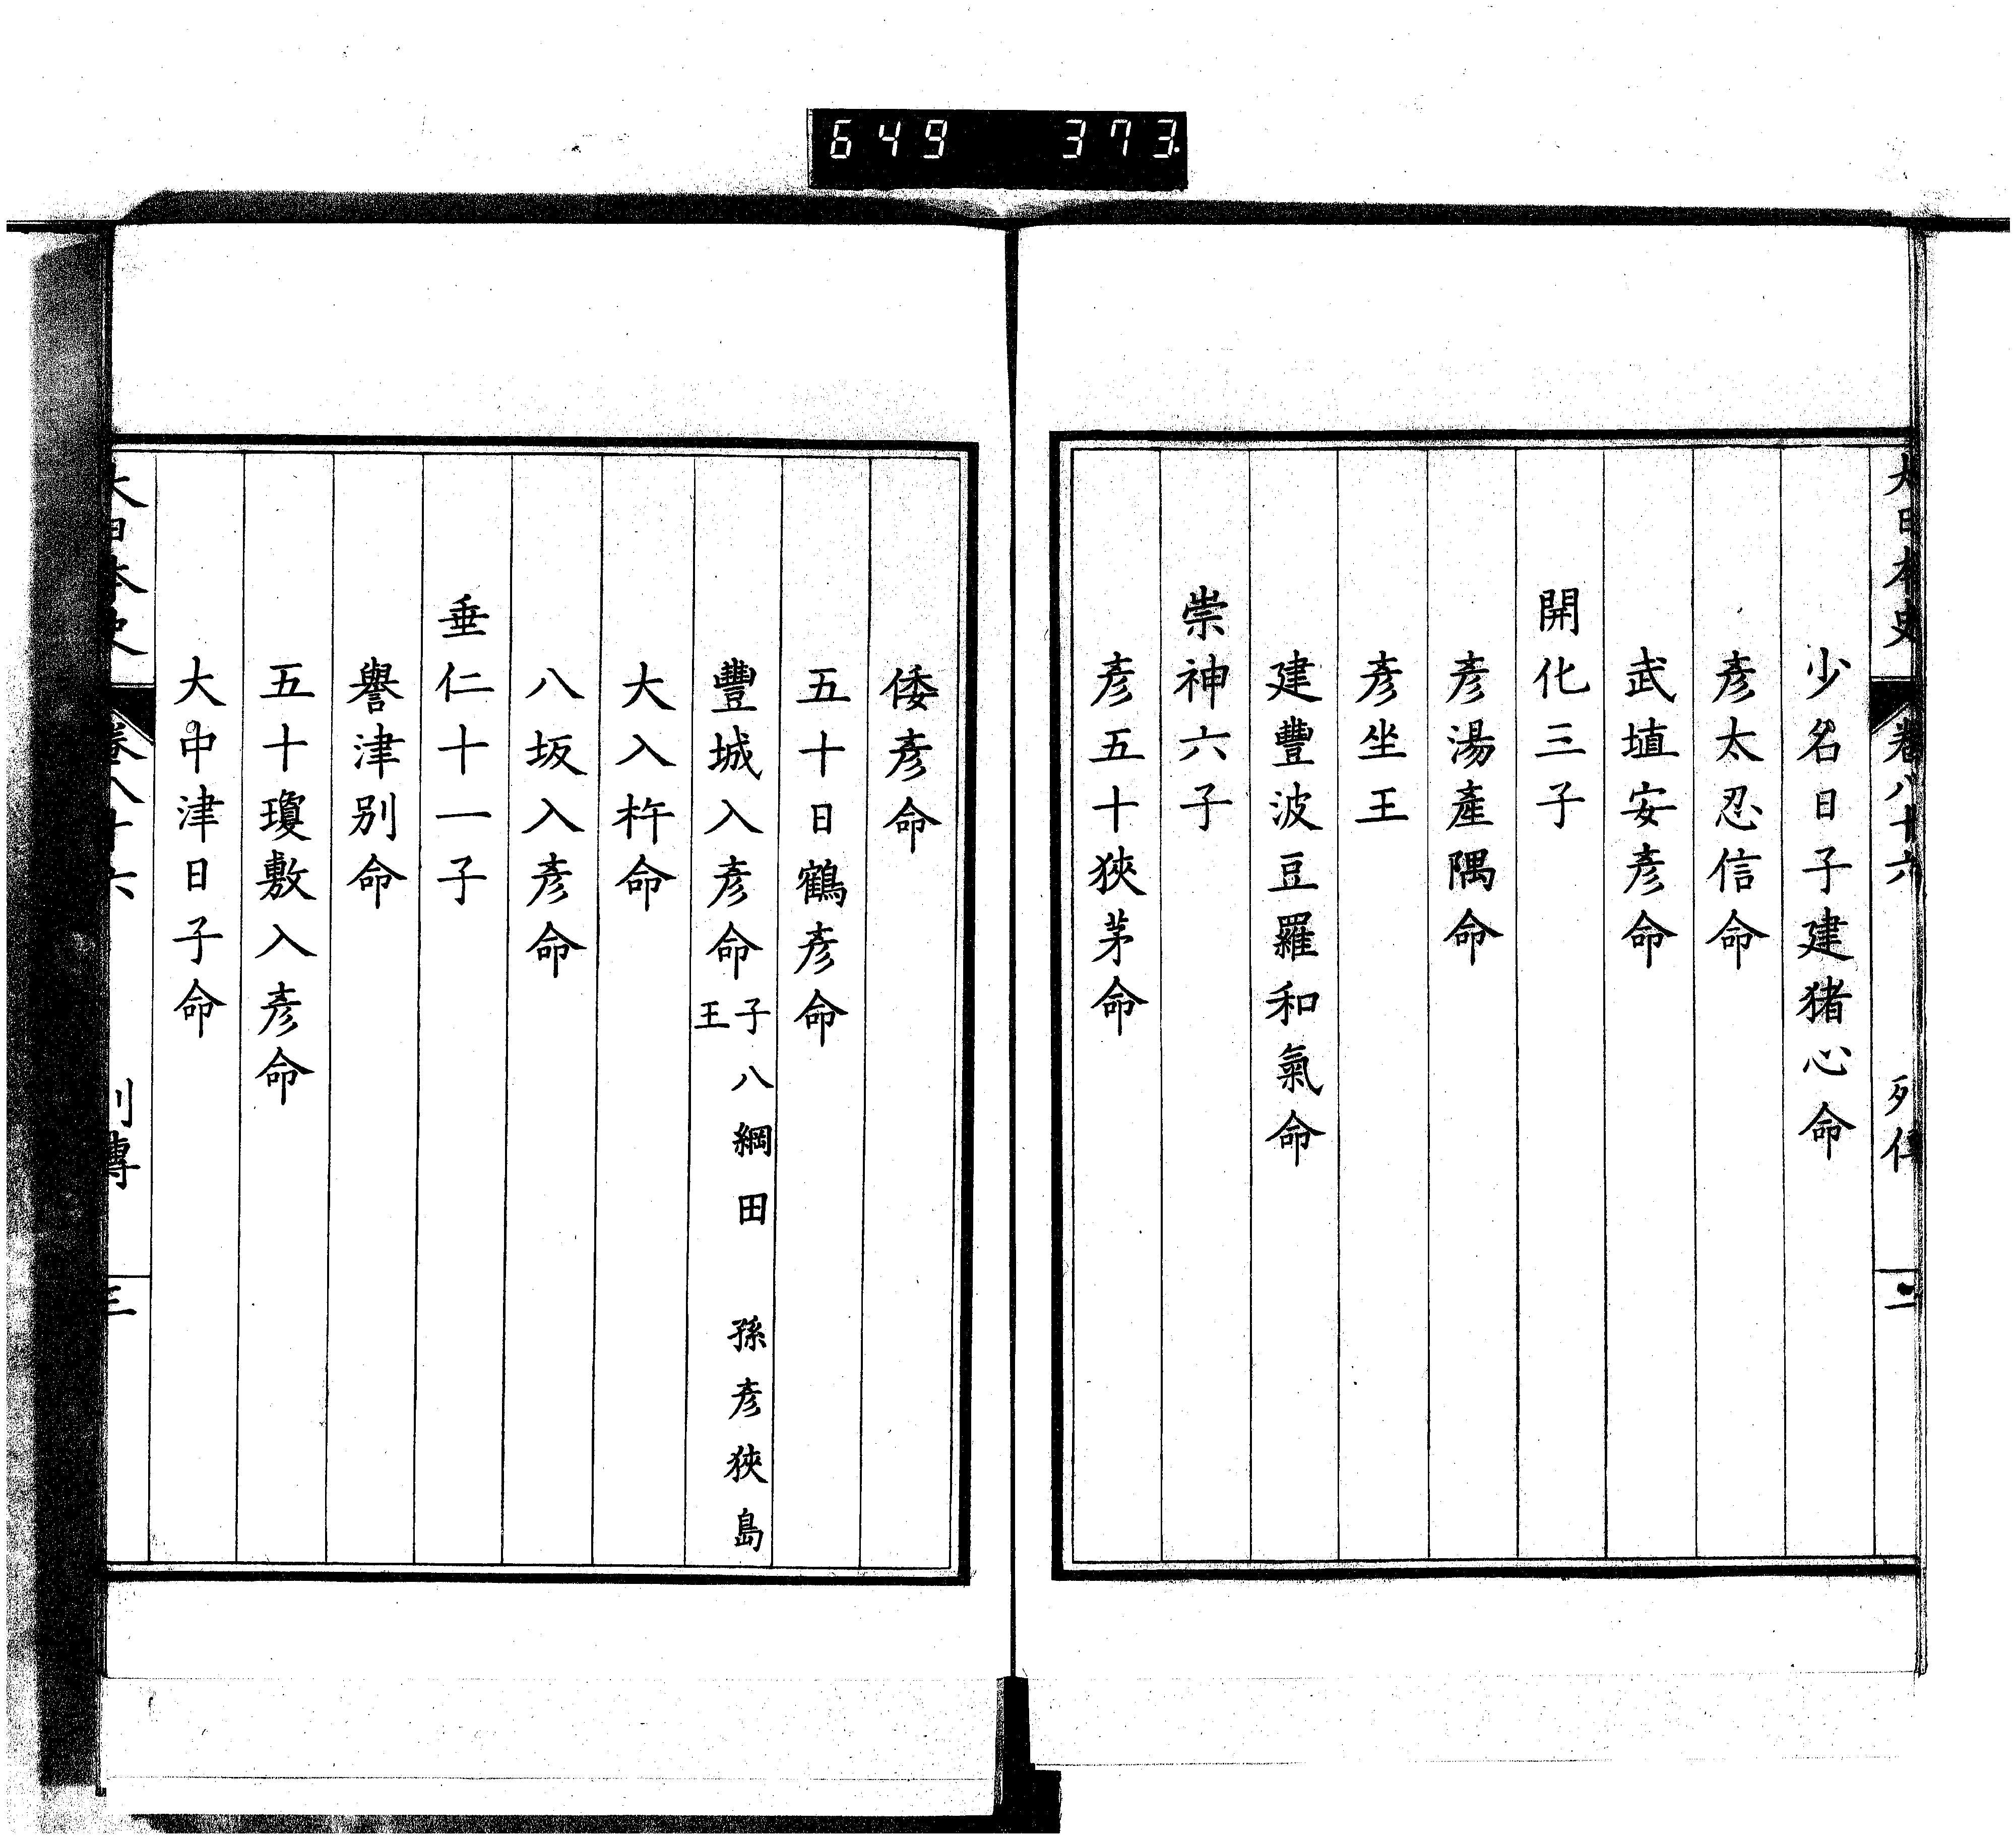 649 373
大日本史 卷八十六 列傳 二
少名日子建猪心命
彥太忍信命
武埴安彥命
開化三子
彥湯產隅命
彥坐王
建豐波豆羅和氣命
崇神六子
彥五十狹茅命
倭彥命
五十日鶴彥命
豐城入彥命 子八綱田 孫彥狹島王
大入杵命
八坂入彥命
垂仁十一子
譽津別命
五十瓊敷入彥命
大中津日子命
大日本史 卷八十六 列傳 三